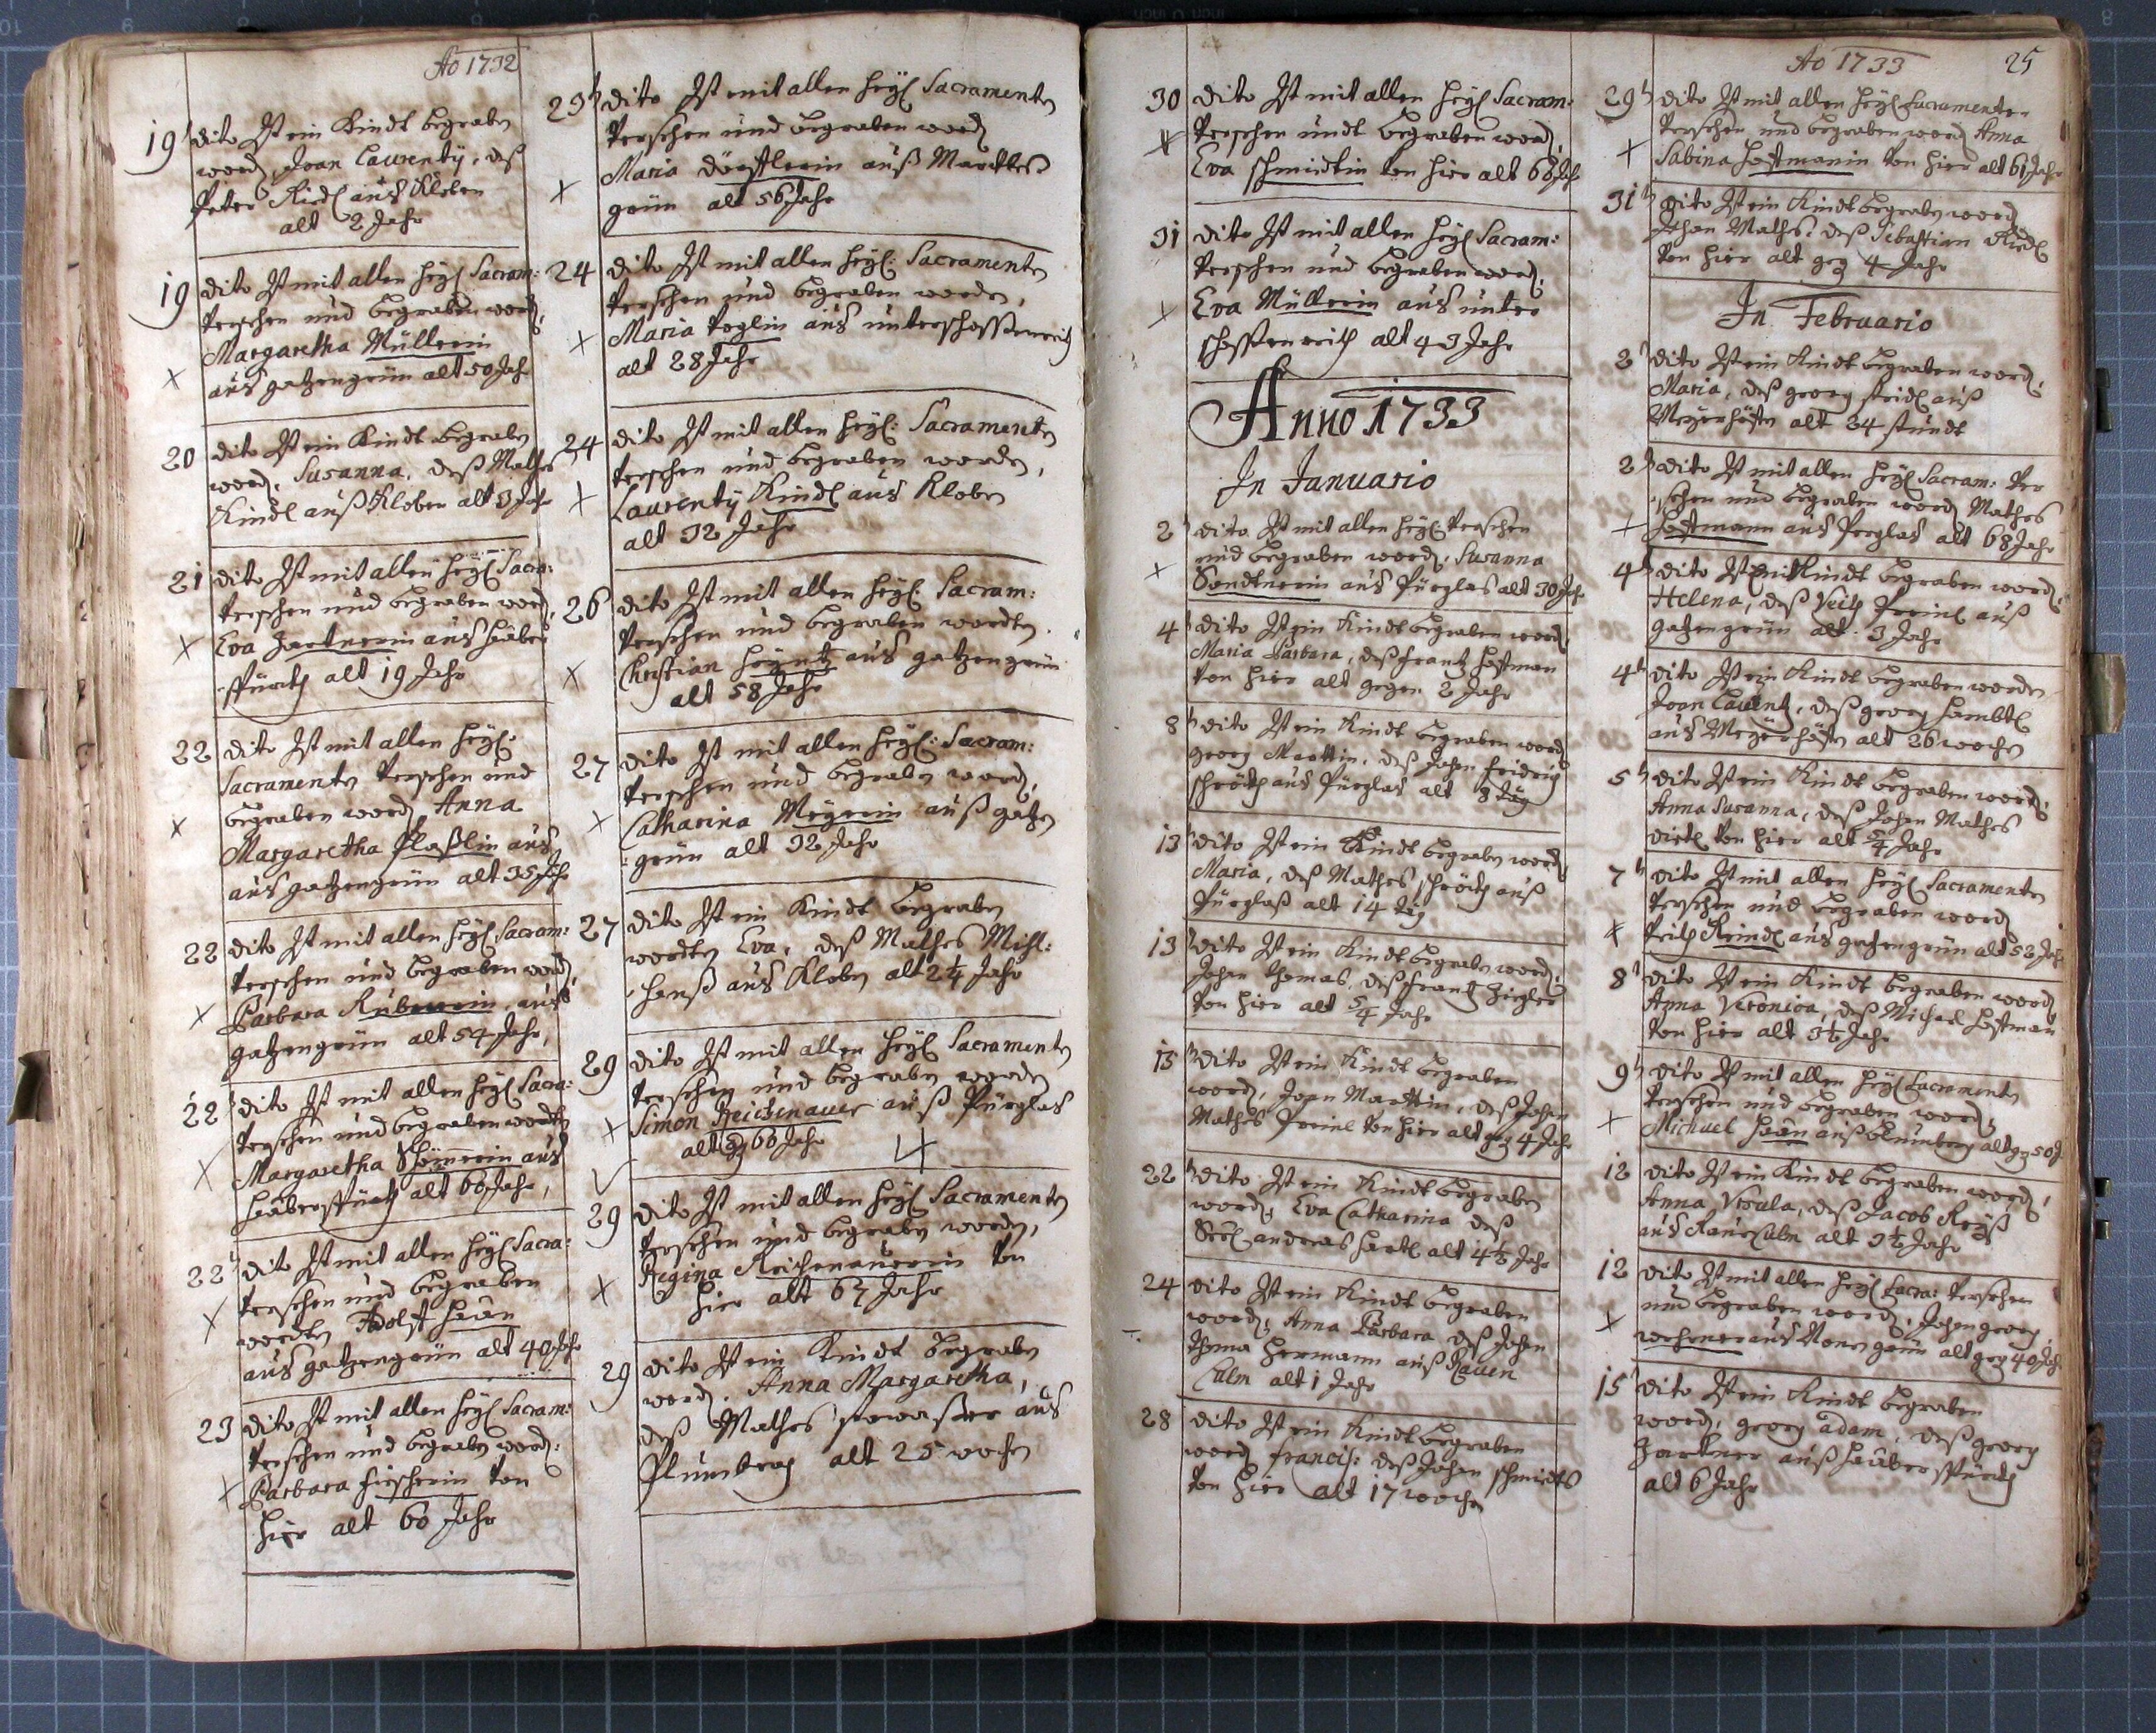 Ao 1732
19 dito Ist ein Kindt begraben
word, Joan Laurentÿ, deß
Peter Riedl aus Kloben
alt 2 Jahr
19 dito Ist mit allen heÿl Sacram:
versehen und begraben word,
Margaretha Müllerin
aus gatzengrün alt 50 Jahr
20 dito Ist ein Kindt begraben
word, Susanna, deß Mathes
Kindl auß Kloben alt 3 Jahr
21 dito Ist mit allen heÿl Sacra:
versehen und begraben word,
Eva Zartnerin aus Haber
spürch alt 19 Jahr
22 dito Ist mit allen heÿl:
Sacramenten versehen und
begraben word, Anna
Margaretha Plaßlin aus
aus gatzengrün alt 35 Jahr
22 dito Ist mit allen heÿl Sacram:
versehen und begraben word,
Barbara Rubnerin aus
gatzengrün alt 54 Jahr,
22 dito Ist mit allen heÿl Sacra:
versehen und begraben wordten
Margaretha aus
Haberspürch alt 60 Jahr,
22 dito Ist mit allen heÿl Sacra:
versehen und begraben
wordten Adolff Haan
aus gatzengrün alt 40 Jahr
23 dito Ist mit allen heÿl Sacram:
versehen und begraben word:
Barbara Fischerin von
hier alt 60 Jahr
23 dito Ist mit allen heÿl Sacramenten
versehen und begraben word
Maria Dörfflerin auß Marckles
grün alt 56 Jahr
24 dito Ist mit allen heÿl: Sacramenten
versehen und begraben worden,
Maria Voglin aus unterschossenreith
alt 28 Jahr
24 dito Ist mit allen heÿl: Sacramenten
versehen und begraben worden,
Laurentÿ Kindl aus Kloben
alt 32 Jahr
26 dito Ist mit allen heÿl: Sacram:
versehen und begraben wordten.
Christian Heÿntz aus gatzengrün
alt 58 Jahr
27 dito Ist mit allen heÿl: Sacram:
versehen und begraben word,
Catharina Meÿerin auß gatzen
grün alt 32 Jahr
27 dito Ist ein Kindt begraben
wordten Eva, deß Mathes Mihl:
hanß aus Kloben alt 2 1/4 Jahr
29 dito Ist mit allen heÿl Sacramenten
versehen und begraben worden
Simon Reichenauer auß Pürglas
alt 60 Jahr
29 dito Ist mit allen heÿl Sacramenten
versehen und begraben worden,
Regina Reichenauerin von
hier alt 67 Jahr
29 dito Ist ein Kindt begraben
word, Anna Margaretha,
deß Mathes aus
Plumberg alt 25 wochen
30 dito Ist mit allen heÿl Sacram:
versehen undt begraben word,
Eva Schmidtin von hier alt 68 Jahr
31 dito Ist mit allen heÿl Sacram:
versehen und begraben word,
Eva Müllerin aus unter
schossenreith alt 43 Jahr
Anno 1733
In Januario
2 dito Ist mit allen heÿl: versehen
und begraben word, Susanna
Sandtnerin aus Pürglas alt 30 Jahr
4 dito Ist ein Kindt begraben word,
Maria Barbara, deß Frantz Hoffman
von hier alt gegen 2 Jahr
8 dito Ist ein Kindt begraben word
georg Marttin, deß Johan Fridrich
schröth aus Pürglas alt 3 tag
13 dito Ist ein Kindt begraben word,
Maria, deß Mathes schröth auß
Pürglaß alt 14 tag
13 dito Ist ein Kindt begraben word,
Johan Thomas, deß Frantz Ziegler
von hier alt 5/4 Jahr
15 dito Ist ein Kindt begraben
word, Joan Marttin, deß Johan
Mathes von hier alt geg 4 Jahr
22 dito Ist ein Kindt begraben
word, Eva Catharina deß
Seel andreas Hertl alt 4 1/2 Jahr
24 dito Ist ein Kindt begraben
word, Anna Barbara deß Johan
Thoma Hermann auß Rauen
Culm alt 1 Jahr
28 dito Ist ein Kindt begraben
word francis: deß Johan Schmidts
von hier alt 17 wochen
Ao 1733 25
29 dito Ist mit allen heÿl Sacramenten
versehen und begraben word Anna
Sabina Hoffmanin von hier alt 61 Jahr
31 dito Ist ein Kindt begraben word
Johan Mathes. deß Sebastian Riedl
von hier alt geg 4 Jahr
In Februario
2 dito Ist ein Kindt begraben word,
Maria, deß georg auß
Meÿerhöffen alt 24 stundt
2 dito Ist mit allen heÿl Sacram: ver
sehen und begraben word Mathes
Hoffmann aus Perglas alt 68 Jahr
4 dito Ist ein Kindt begraben word,
Helena, deß Veith auß
gatzengrün alt 3 Jahr
4 dito Ist ein Kindt begraben worden
Joan Laurentz, deß georg
aus Meÿerhöffen alt 26 wochen
5 dito Ist ein Kindt begraben word,
Anna Susanna, deß Johan Mathes
Dietl von hier alt 5/4 Jahr
7 dito Ist mit allen heÿl Sacramenten
versehen und begraben word
Veith Kreindl aus gatzengrün alt 52 Jahr
8 dito Ist ein Kindt begraben word
Anna Veronica, deß Michael Hoffman
von hier alt 3 1/2 Jahr
9 dito Ist mit allen heÿl Sacramenten
versehen und begraben word,
Michael Haan auß blumberg alt geg 50 J
12 dito Ist ein Kindt begraben word,
Anna Ursula, deß Jacob Reÿß
aus Rauenculm alt 3 1/2 Jahr
12 dito Ist mit allen heÿl Sacra: versehen
und begraben word, Johan georg
aus Nonngrün alt geg 40 Jahr
15 dito Ist ein Kindt begraben
word, georg adam, deß georg
Zartner auß Hauberspürch
alt 6 Jahr